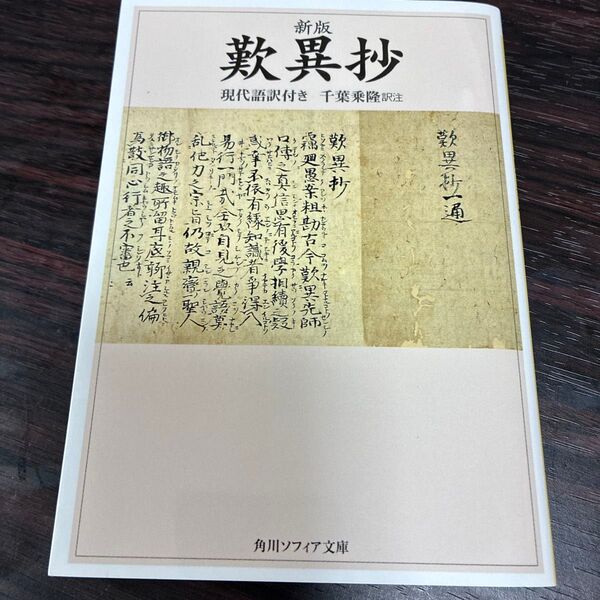 新版
歎異抄
現代語訳付き 千葉乗隆訳注
歎異抄一通
歎異抄
竊廻愚案粗勘古今歎異先師
口傳之真信思有後學相續之疑
惑幸不依有縁知識者争得入
易行一門哉全以自見之覺語莫
乱他力之宗旨仍故親鸞聖人
御物語之趣所留耳底聊注之偏
為散同心行者之不審也云
角川ソフィア文庫